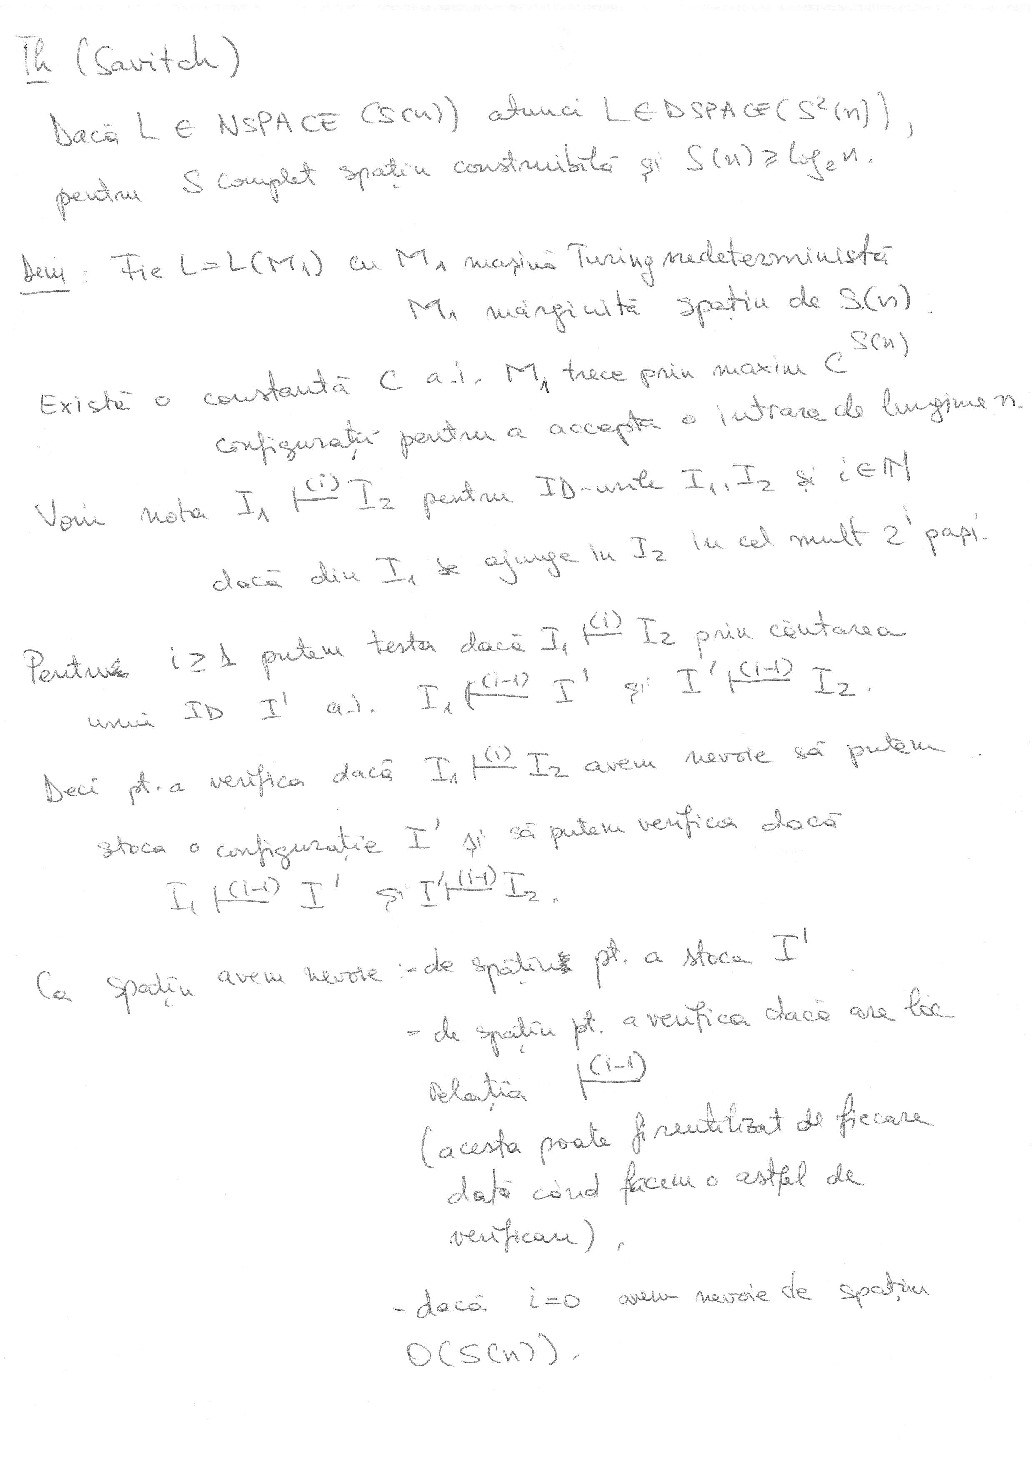 Th (Savitch)
Dacă L ∈ NSPACE (S(n)) atunci L ∈ DSPACE (S²(n)),
pentru S complet spațiu construibilă și S(n) ≥ log₂n.
Dem : Fie L=L(M₁) cu M₁ mașină Turing nedeterministă
M₁ mărginită spațiu de S(n).
Există o constantă C a.i. M₁ trece prin maxim C^S(n)
configurații pentru a accepta o intrare de lungime n.
Vom nota I₁ |-(i) I₂ pentru ID-urile I₁, I₂ și i∈ℕ
dacă din I₁ se ajunge în I₂ în cel mult 2^i pași.
Pentru i ≥ 1 putem testa dacă I₁ |-(i) I₂ prin căutarea
unui ID I' a.i. I₁ |-(i-1) I' și I' |-(i-1) I₂.
Deci pt. a verifica dacă I₁ |-(i) I₂ avem nevoie să putem
stoca o configurație I' și să putem verifica dacă
I₁ |-(i-1) I' și I' |-(i-1) I₂.
Ca spațiu avem nevoie :- de spațiu pt. a stoca I'
- de spațiu pt. a verifica dacă are loc
relația |-(i-1)
(acesta poate fi reutilizat de fiecare
dată când facem o astfel de
verificare),
- dacă i=0 avem nevoie de spațiu
O(S(n)).